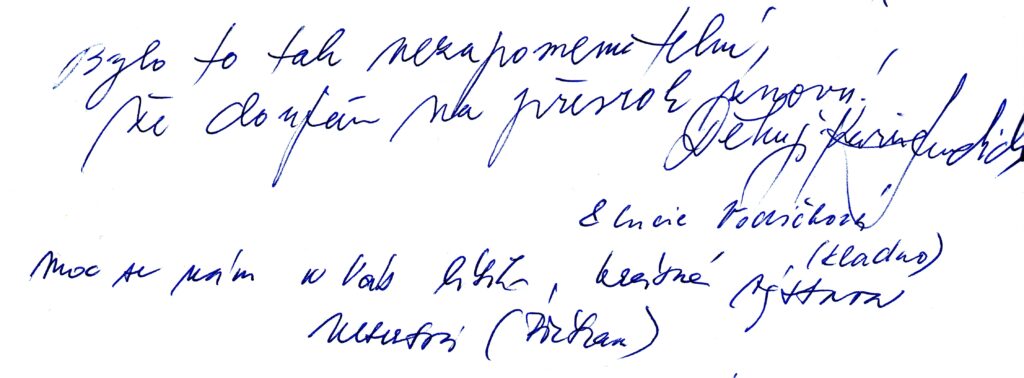 Bylo to tak nezapomenutelné,
že doufám na přesrok znovu.
Děkuji
& Lucie Vodičková
(Kladno)
Moc se nám u Vás líbilo, krásná výstava